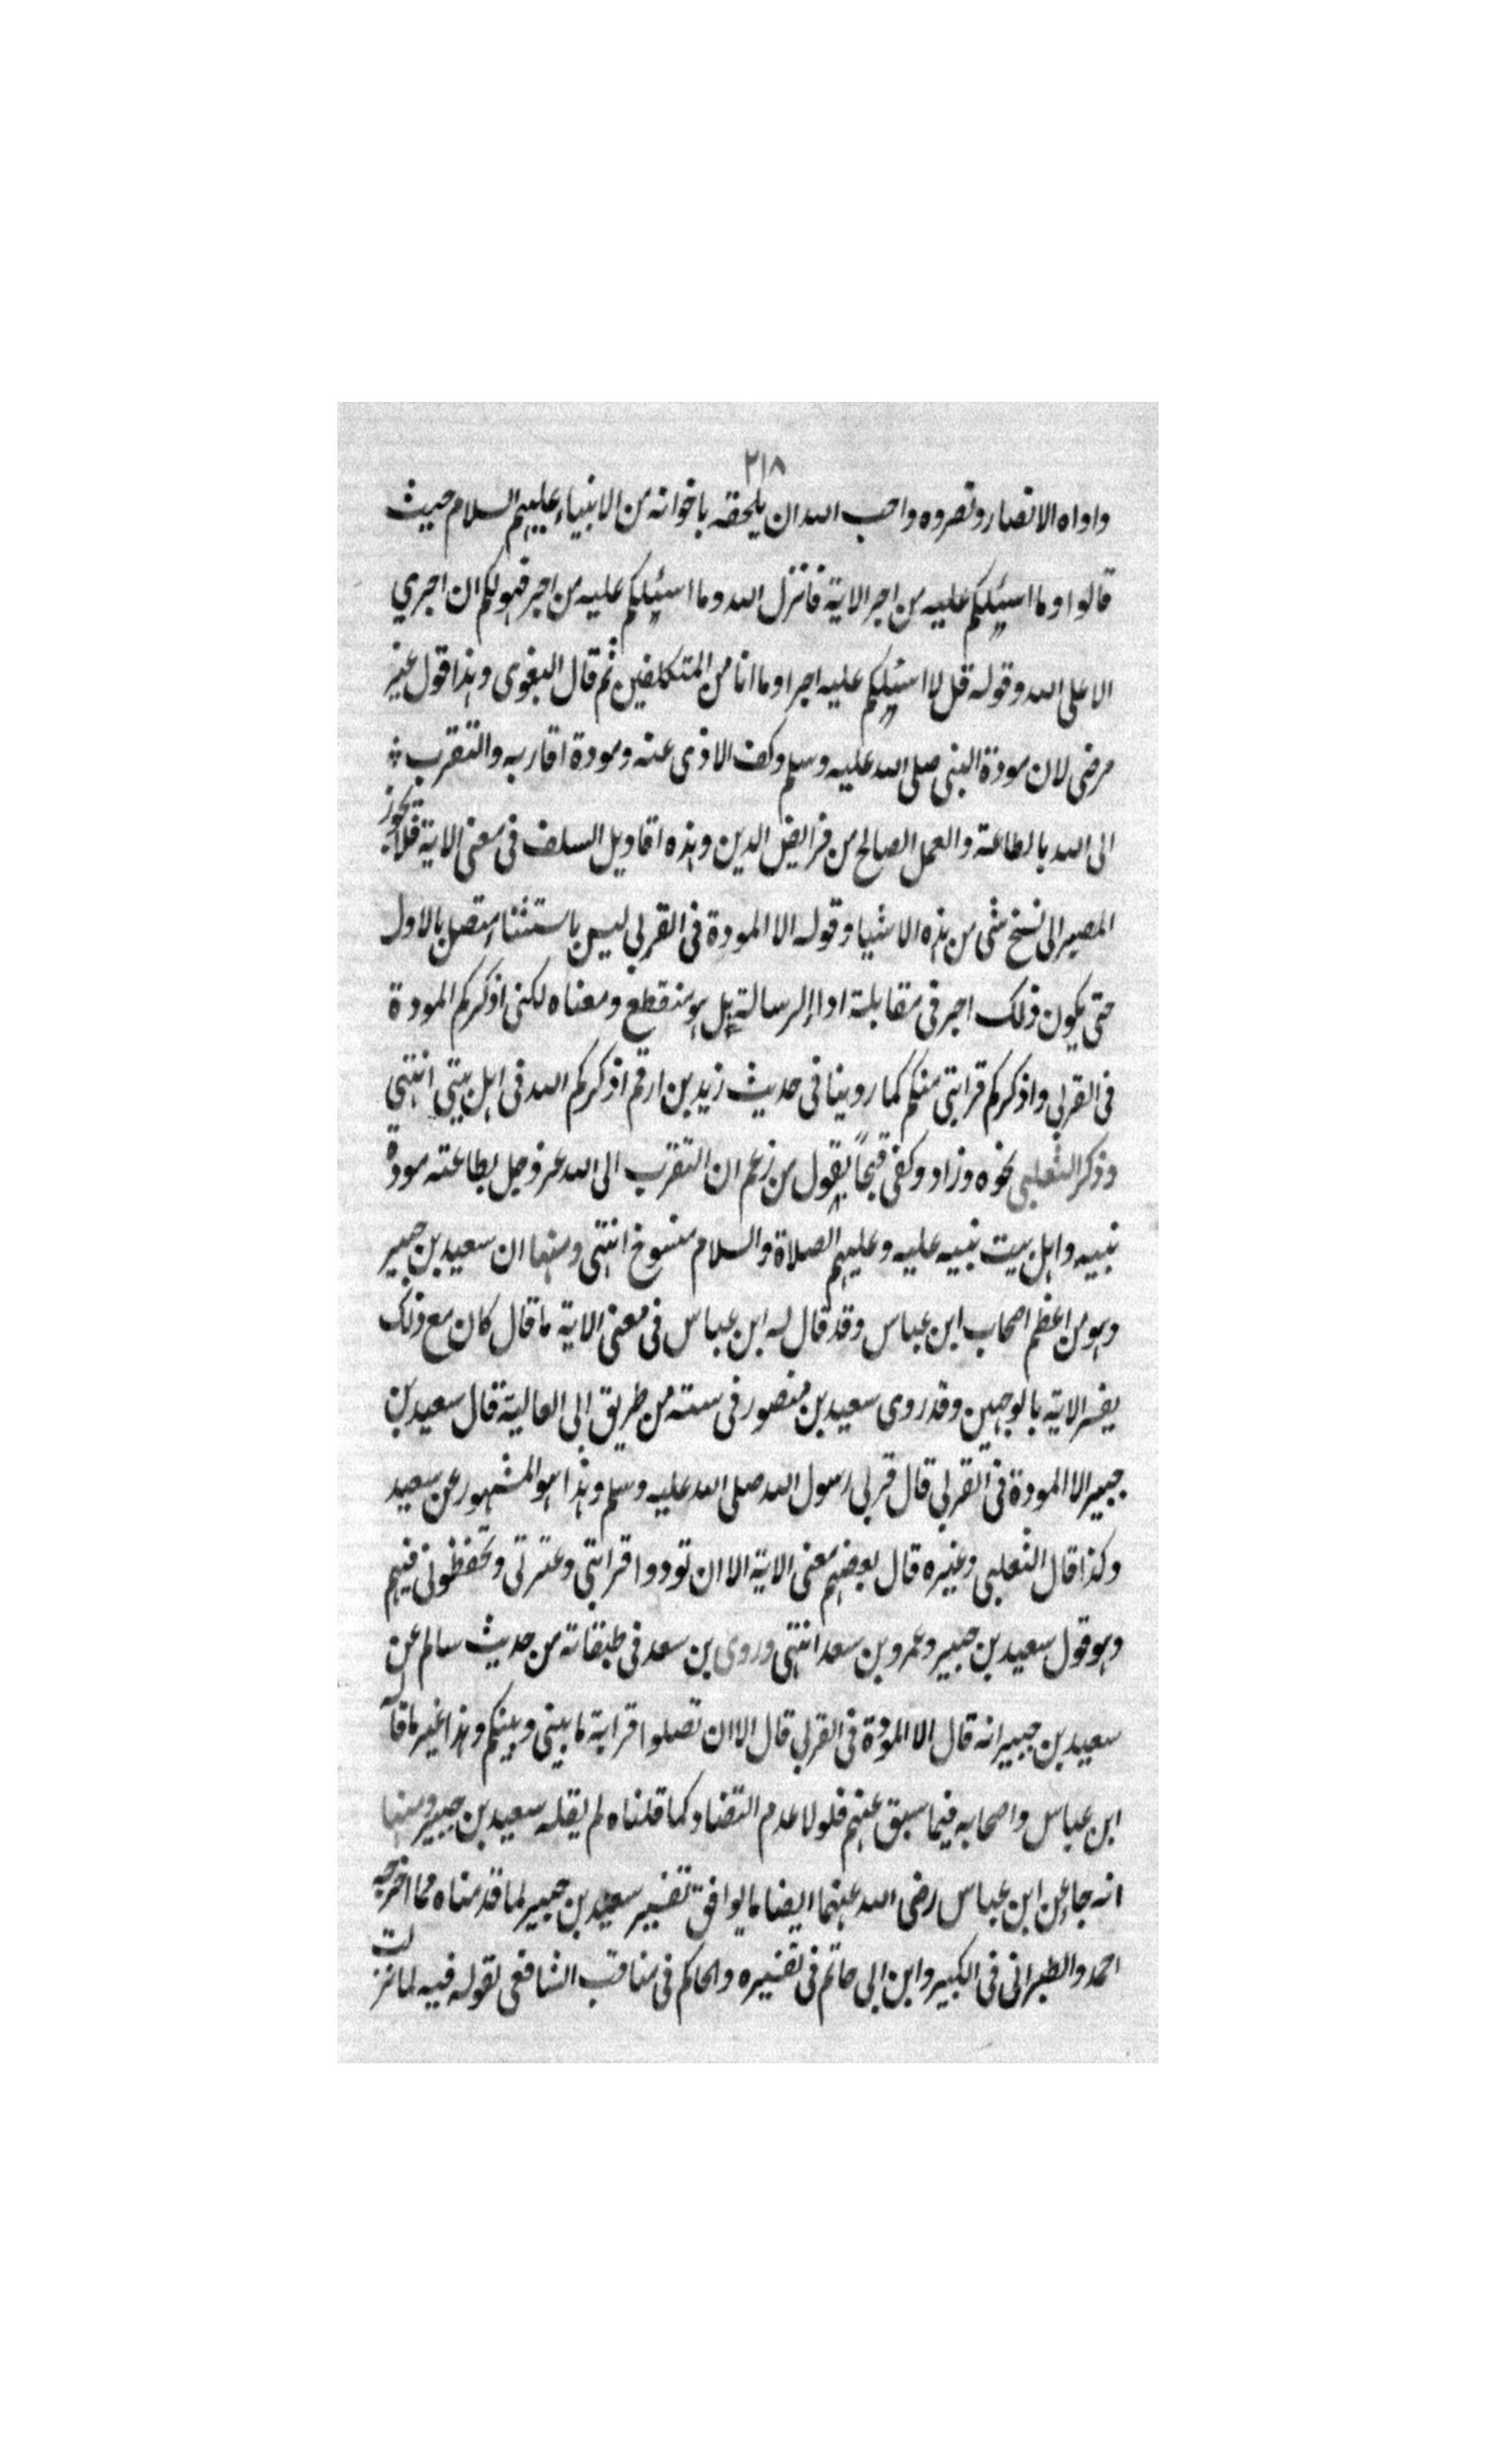 ٢١٨
واواه الانصار ونصروه واحب الله ان يلحقه باخوانه من الانبياء عليهم السلام حيث
قالوا وما اسئلكم عليه من اجر الاية فانزل الله وما اسئلكم عليه من اجر فهو لكم ان اجري
الا على الله وقوله قل لا اسئلكم عليه اجرا وما انا من المتكلفين ثم قال البغوى وهذا قول غير
مرضى لان مودة النبى صلى الله عليه وسلم وكف الاذى عنه ومودة اقاربه والتقرب
الى الله بالطاعة والعمل الصالح من فرايض الدين وهذه اقاويل السلف فى معنى الاية فلا يجوز
المصير الى نسخ شى من هذه الاشيا وقوله الا المودة فى القربى ليس باستثناء متصل بالاول
حتى يكون ذلك اجر فى مقابلة اداء الرسالة بل هو منقطع ومعناه لكنى اذكركم المودة
فى القربى واذكركم قرابتى منكم كما روينا فى حديث زيد بن ارقم اذكركم الله فى اهل بيتى انتهى
وذكر الثعلبى نحوه وزاد وكفى قبحاً بقول من زعم ان التقرب الى الله عز وجل بطاعته مودة
نبيه واهل بيت نبيه عليه وعليهم الصلاة والسلام منسوخ انتهى ومنها ان سعيد بن جبير
وهو من اعظم اصحاب ابن عباس وقد قال له ابن عباس فى معنى الاية ما قال كان مع ذلك
يفسر الاية بالوجهين وقد روى سعيد بن منصور فى سننه من طريق ابى العالية قال سعيد بن
جبير الا المودة فى القربى قال قربى رسول الله صلى الله عليه وسلم وهذا هو المشهور عن سعيد
وكذا قال الثعلبى وغيره قال بعضهم معنى الاية الا ان تودوا قرابتى وعترتى وتحفظونى فيهم
وهو قول سعيد بن جبير وعمرو بن سعد انتهى وروى بن سعد فى طبقاته من حديث سالم عن
سعيد بن جبير انه قال الا المودة فى القربى قال الا ان تصلوا قرابة ما بينى وبينكم وهذا غير ما قاله
ابن عباس واصحابه فيما سبق عنهم فلولا عدم التضاد كما قلناه لم يقله سعيد بن جبير ومنها
انه جاء عن ابن عباس رضى الله عنهما ايضا ما يوافق تفسير سعيد بن جبير لما قدمناه مما اخرجه
احمد والطبرانى فى الكبير وابن ابى حاتم فى تفسيره والحاكم فى مناقب الشافعى لقوله فيه لما نزلت